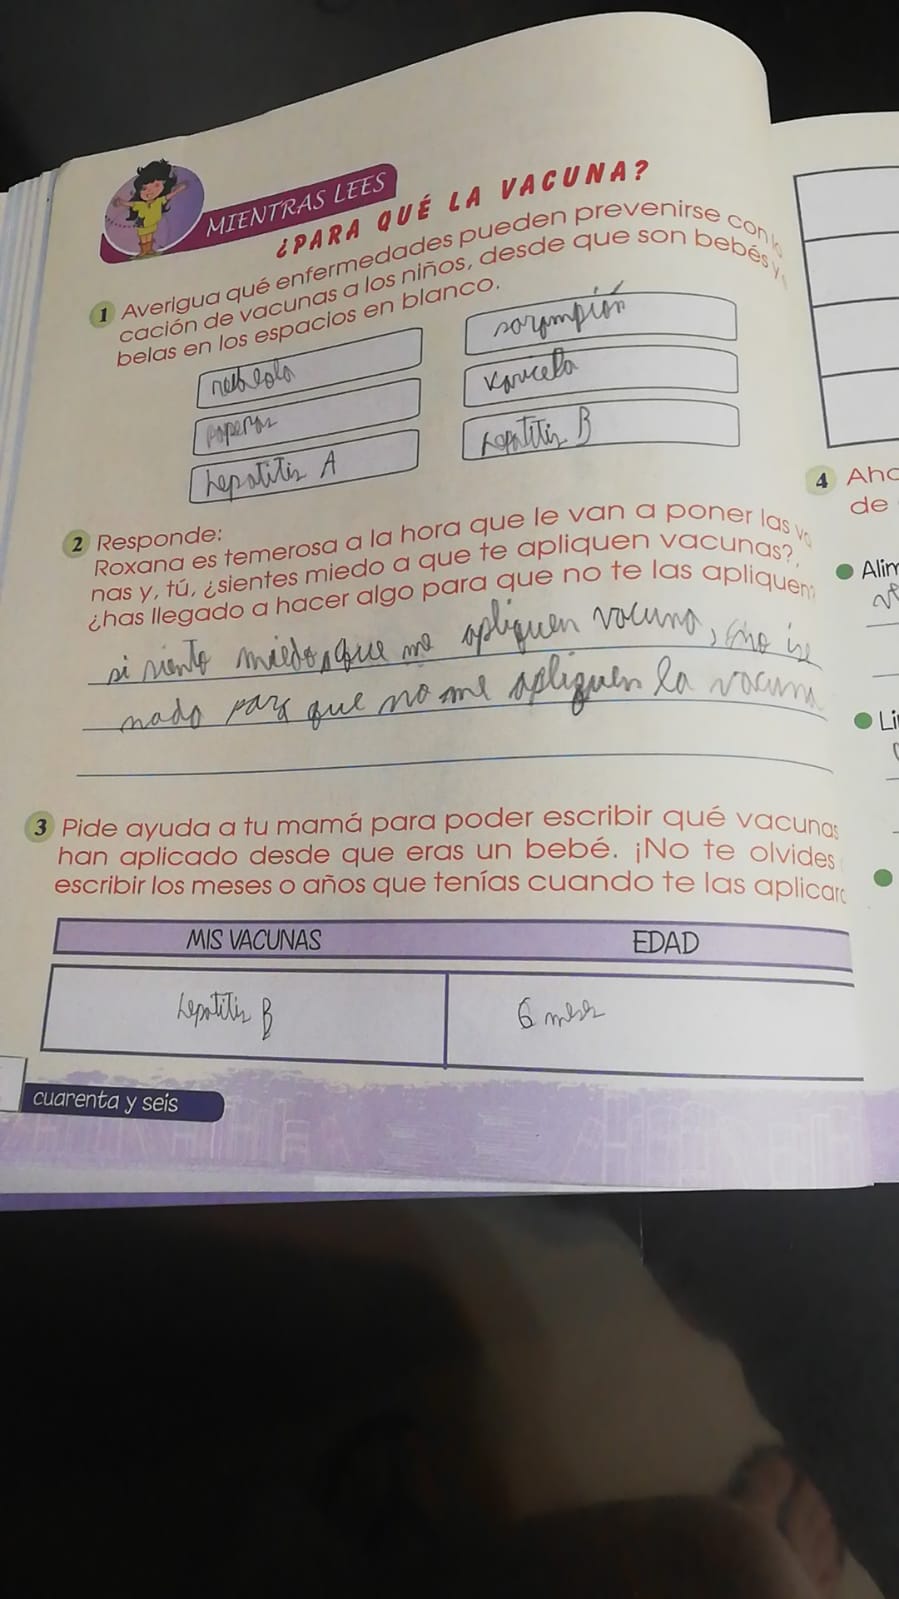 MIENTRAS LEES
¿PARA QUÉ LA VACUNA?
1 Averigua qué enfermedades pueden prevenirse con
cación de vacunas a los niños, desde que son bebés y
belas en los espacios en blanco.
rubeola
sarampión
paperas
varicela
hepatitis A
hepatitis B
2 Responde:
Roxana es temerosa a la hora que le van a poner las va
nas y, tú, ¿sientes miedo a que te apliquen vacunas?,
¿has llegado a hacer algo para que no te las apliquen
si siento miedo que me apliquen vacuna, no ise
nado para que no me apliquen la vacuna
3 Pide ayuda a tu mamá para poder escribir qué vacunas
han aplicado desde que eras un bebé. ¡No te olvides
escribir los meses o años que tenías cuando te las aplicar
MIS VACUNAS EDAD
hepatitis B 6 meses
cuarenta y seis
4 Aho
de
Alim
Li